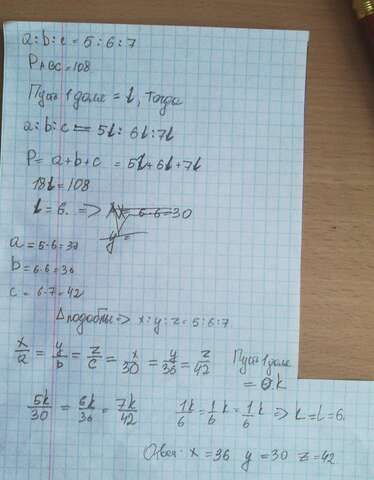 a:b:c=5:6:7
P ABC=108
Пусть 1 доля = l, Тогда
a:b:c = 5l:6l:7l
P= a+b+c = 5l+6l+7l
18l=108
l=6. =>
y =
a = 5·6=30
b = 6·6=36
c = 6·7=42
Δ подобны => x:y:z=5:6:7
x/a = y/b = z/c = x/30 = y/36 = z/42
Пусть 1 доля = k
5k/30 = 6k/36 = 7k/42
1k/6 = 1k/6 = 1k/6 => k=l=6.
Ответ: x=36 y=30 z=42